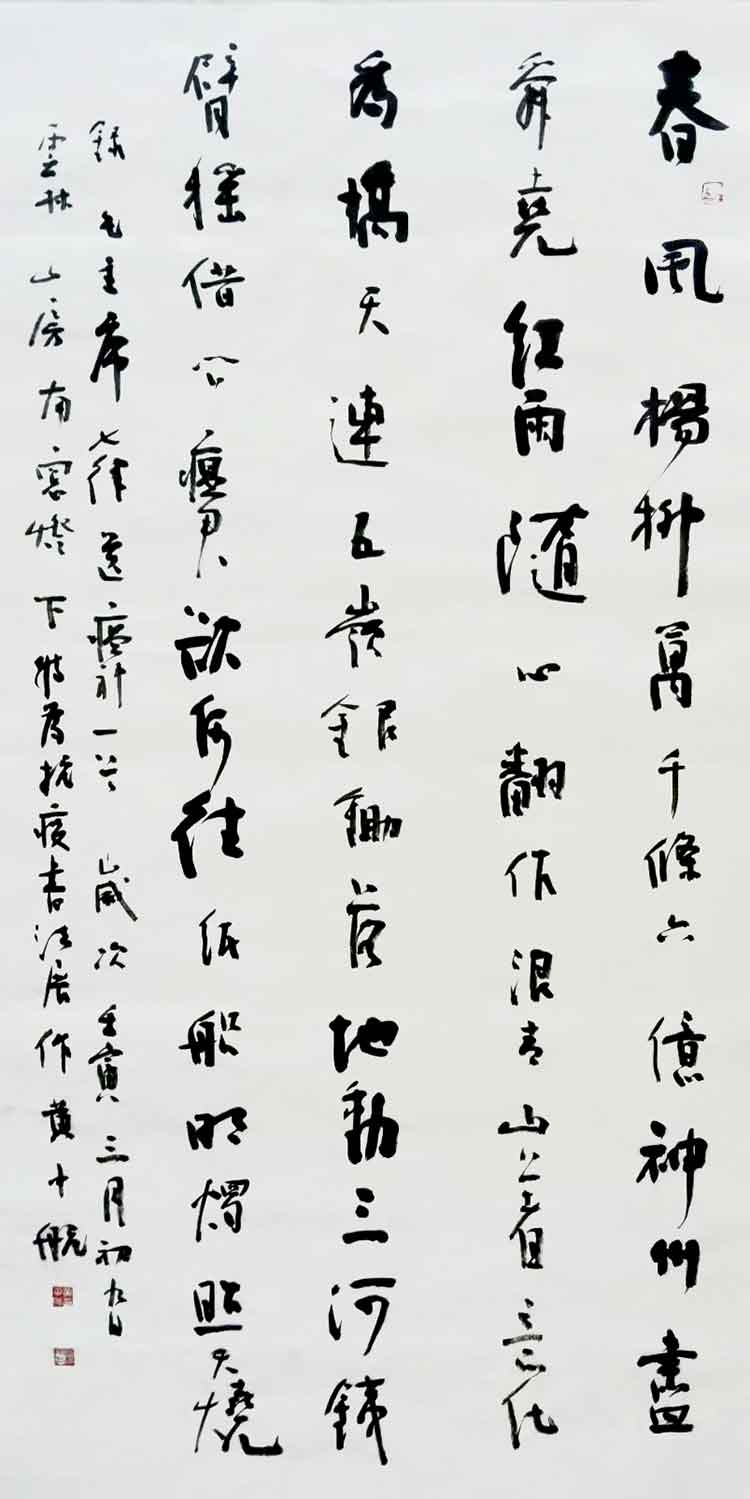 春風楊柳萬千條六億神州盡
舜堯紅雨隨心翻作浪青山着意化
為橋天連五嶺銀鋤落地動三河鐵
臂搖借問瘟君欲何往紙船明燭照天燒
錄毛主席七律送瘟神一首 歲次壬寅三月初九日
雲林山房南窗燈下特為抗疫書法展作黃十航